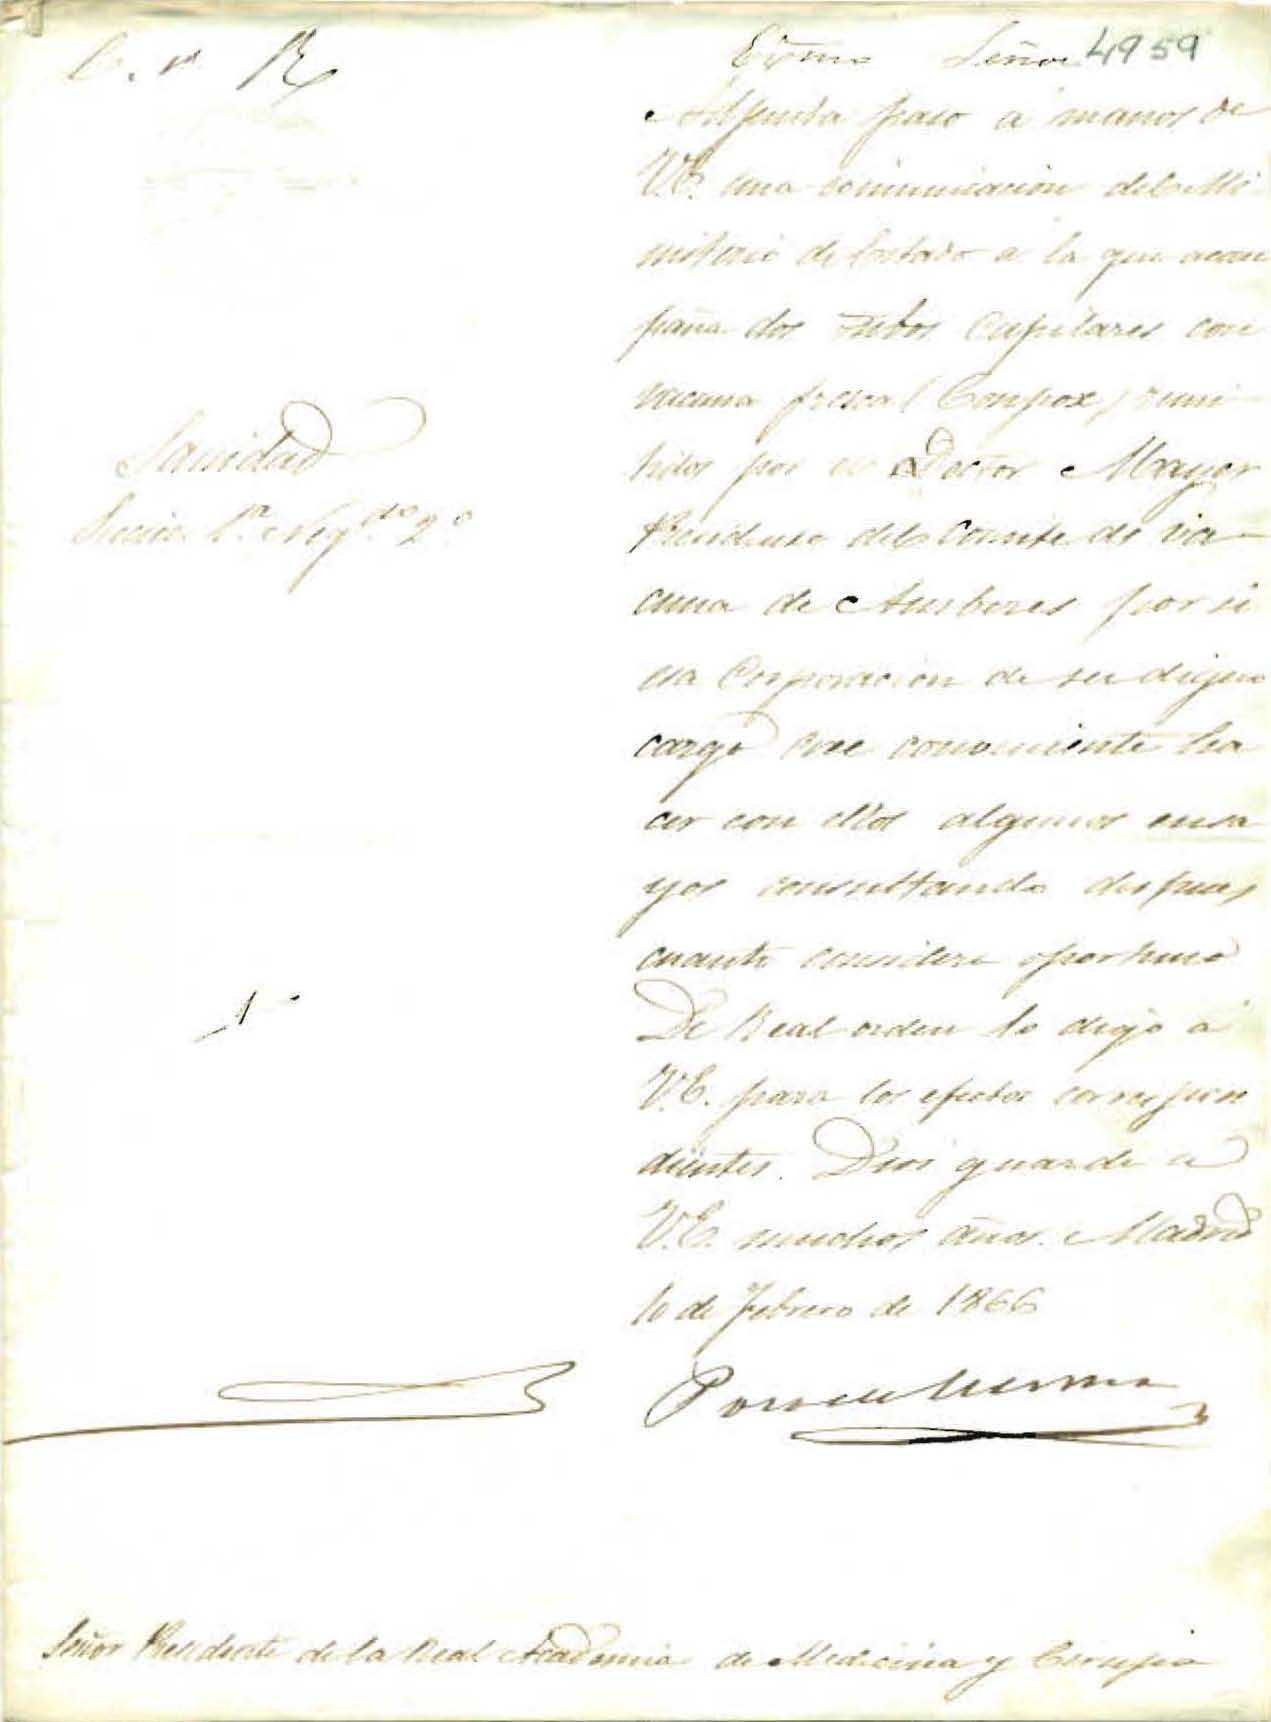 Excmo Señor 4959
Adjunta paso a manos de
V.E. una comunicacion del Mi
nisterio de Estado a la que acom
paña dos tubos Capilares con
vacuna fresca (Compox) remi
tidos por el Doctor Mayer
Presidente del Comite de va-
cuna de Amberes por si
esa Corporacion de su digno
cargo cree conveniente ha
cer con ellos algunos ensa
yos consultando despues
cuanto considere oportuno
De Real orden lo digo a
V.E. para los efectos correspon
dientes. Dios guarde a
V.E. muchos años. Madrid
10 de Febrero de 1866
Sanidad
Seccion 1ª Negdo 2º
Señor Presidente de la Real Academia de Medicina y Cirugia